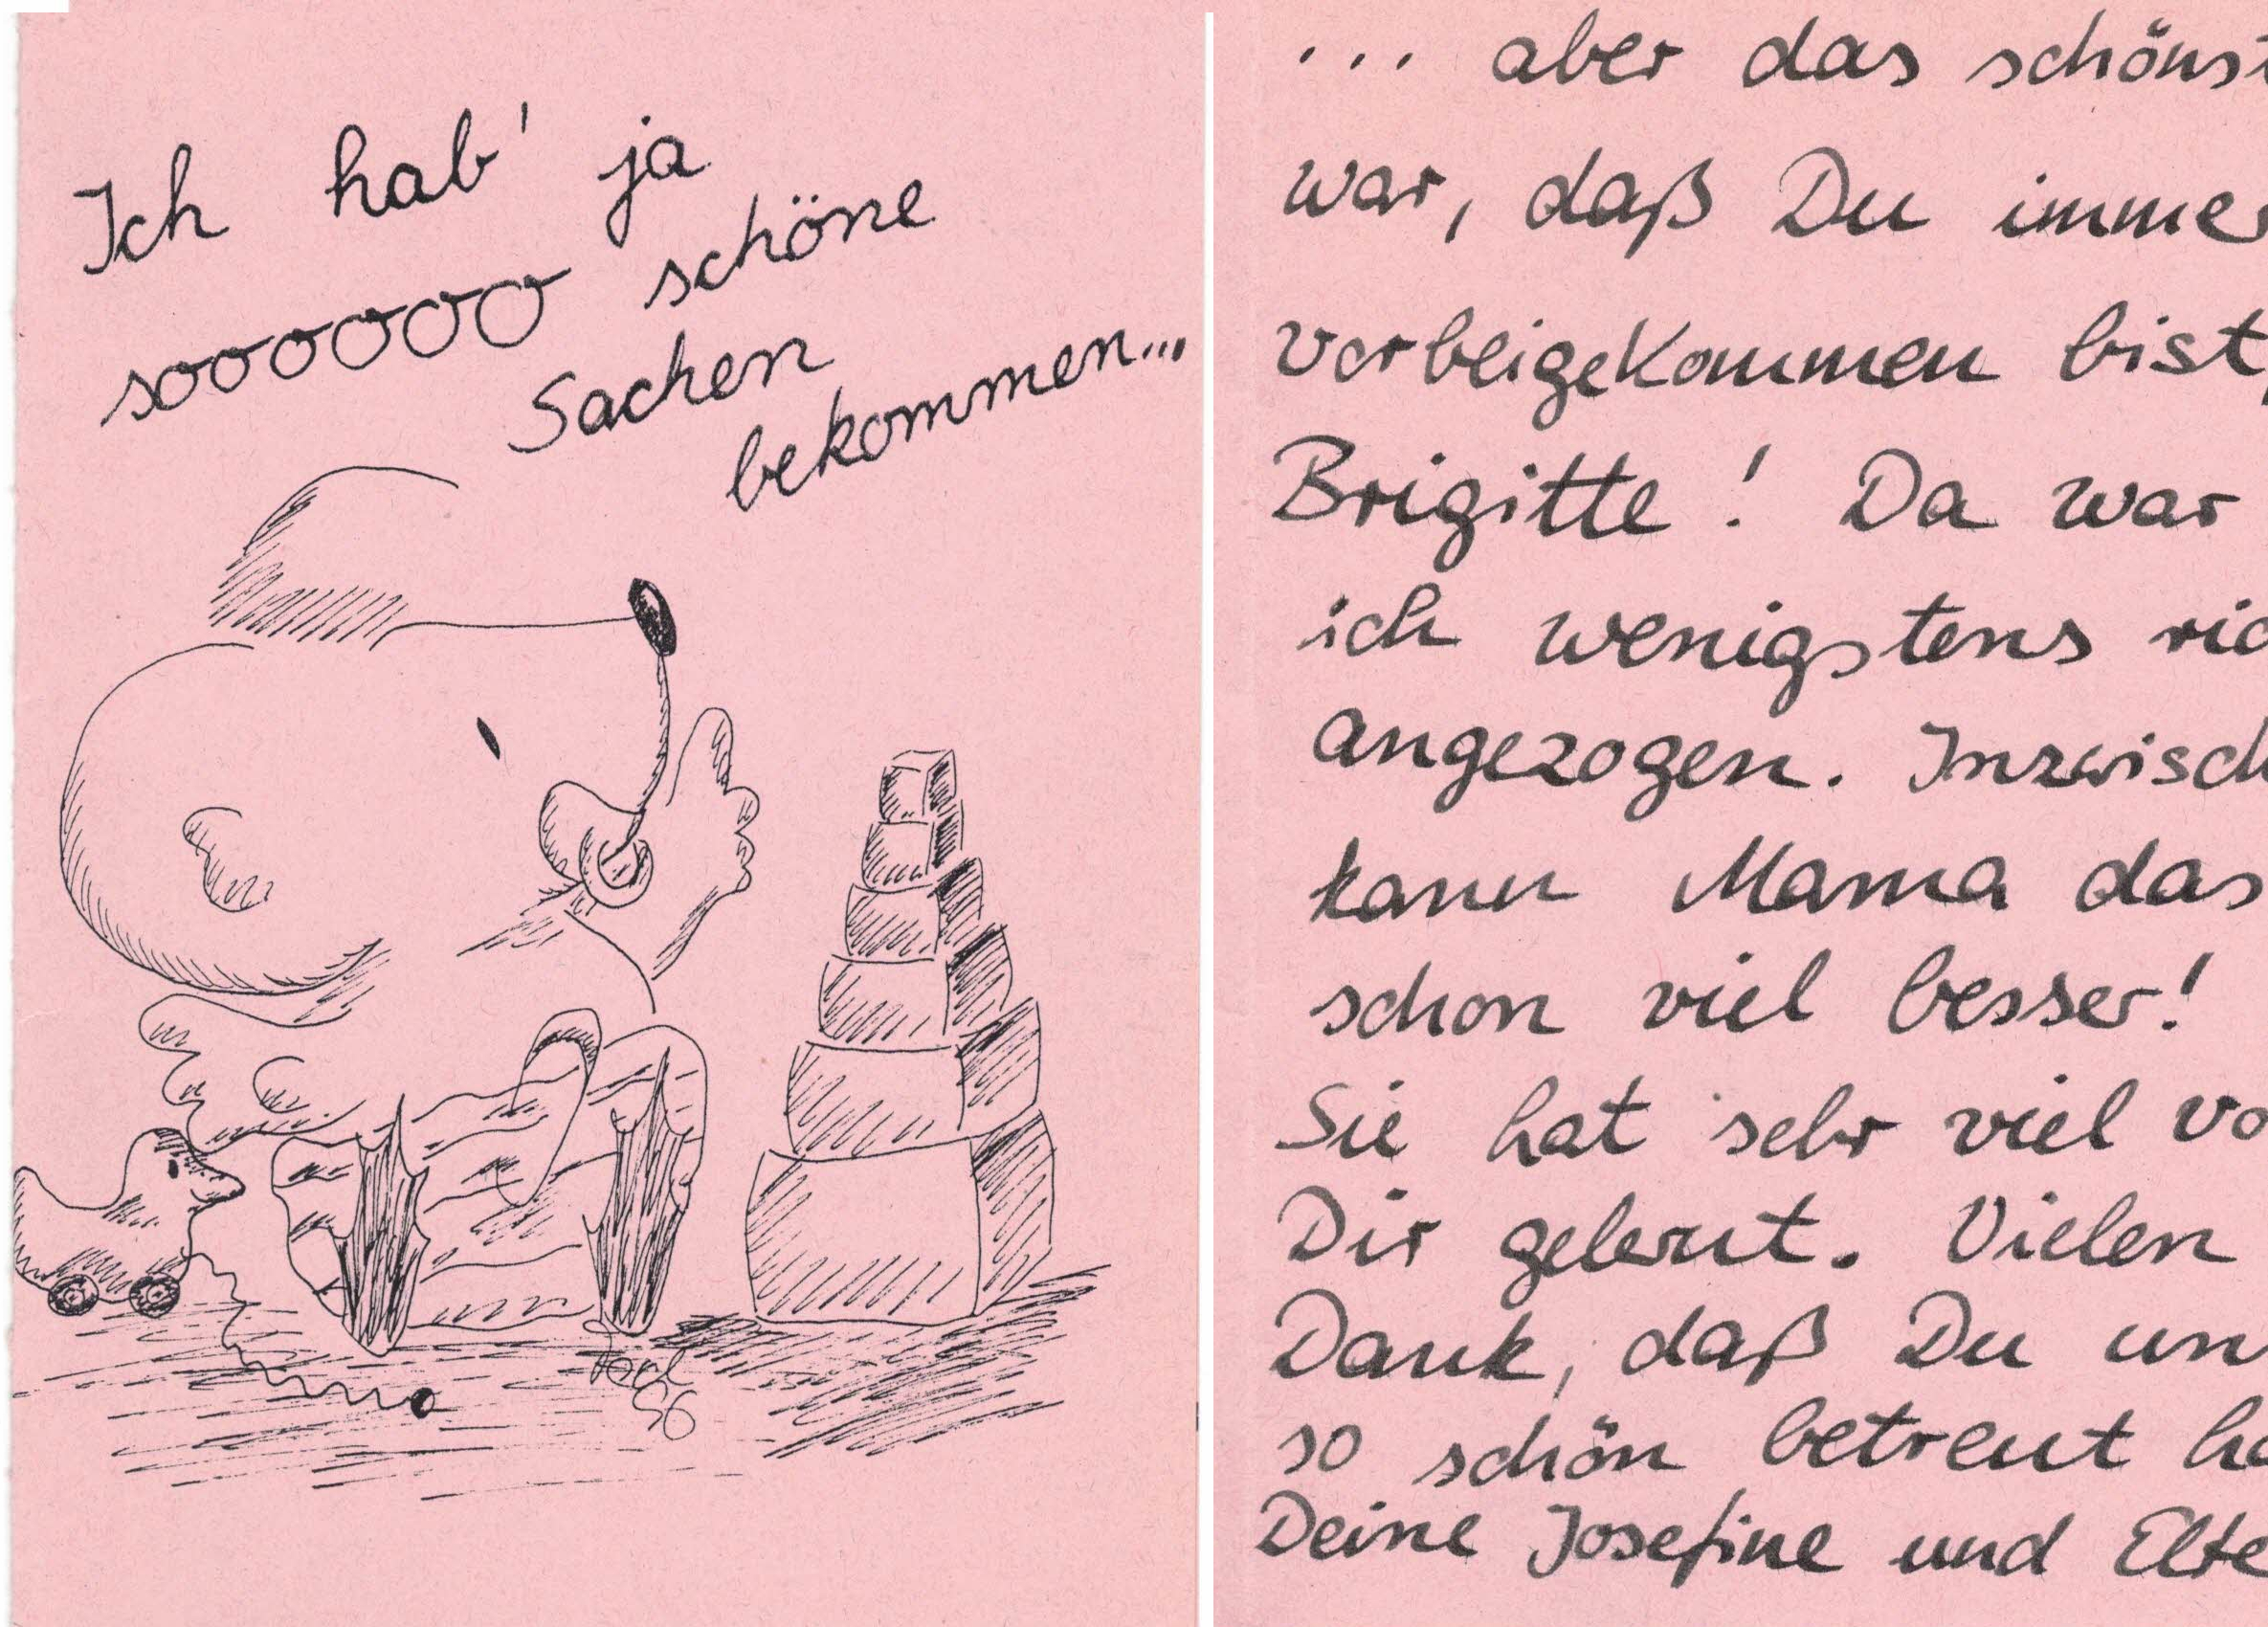 Ich hab' ja
soooooo schöne
Sachen
bekommen...
... aber das schönst
war, daß Du imme
vorbeigekommen bist,
Brigitte! Da war
ich wenigstens ric
angezogen. Inzwisch
kann Mama das
schon viel besser!
Sie hat sehr viel vo
Dir gelernt. Vielen
Dank, daß Du un
so schön betreut ha
Deine Josefine und Elte